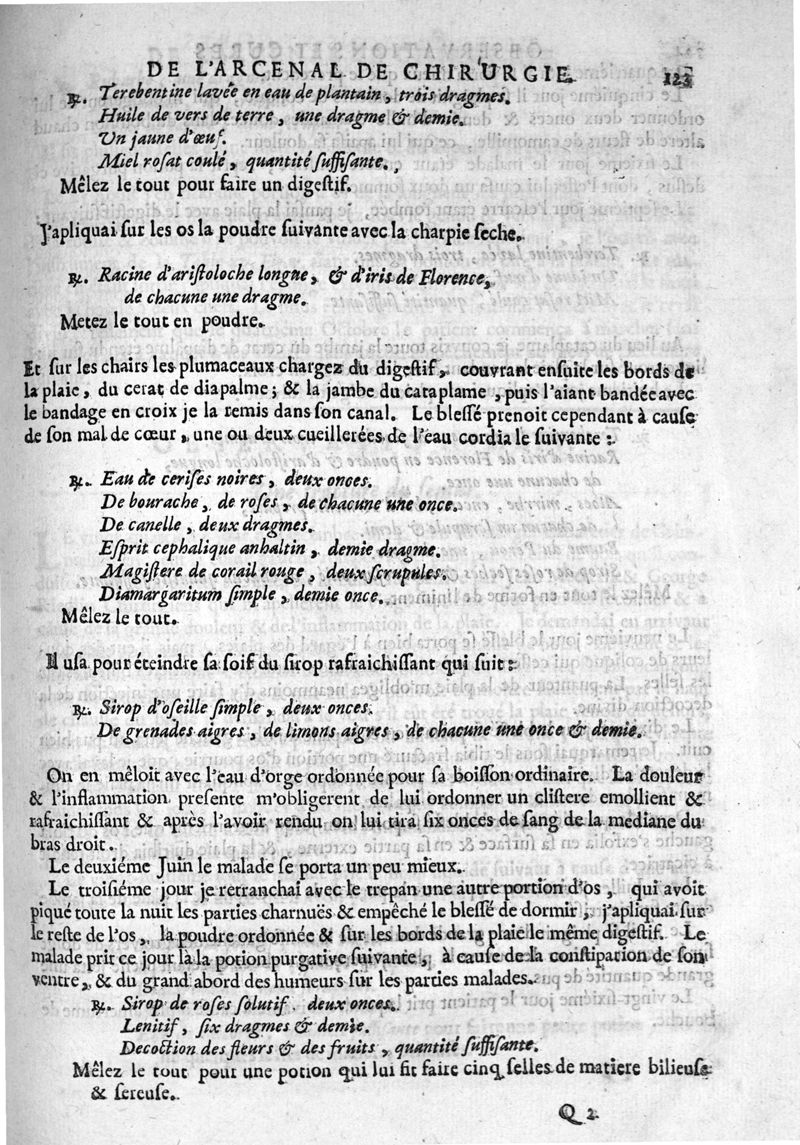 DE L'ARCENAL DE CHIRURGIE. 123
℞. Terebentine lavée en eau de plantain, trois dragmes.
Huile de vers de terre, une dragme & demie.
Un jaune d'œuf.
Miel rosat coulé, quantité suffisante.
Mêlez le tout pour faire un digestif.
J'apliquai sur les os la poudre suivante avec la charpie seche.
℞. Racine d'aristoloche longue, & d'iris de Florence,
de chacune une dragme.
Metez le tout en poudre.
Et sur les chairs les plumaceaux chargez du digestif, couvrant ensuite les bords de
la plaie, du cerat de diapalme; & la jambe du cataplame, puis l'aiant bandée avec
le bandage en croix je la remis dans son canal. Le blessé prenoit cependant à cause
de son mal de cœur, une ou deux cueillerées de l'eau cordiale suivante:
℞. Eau de cerises noires, deux onces.
De bourache, de roses, de chacune une once.
De canelle, deux dragmes.
Esprit cephalique anhaltin, demie dragme.
Magistere de corail rouge, deux scrupules.
Diamargaritum simple, demie once.
Mêlez le tout.
Il usa pour éteindre sa soif du sirop rafraichissant qui suit:
℞. Sirop d'oseille simple, deux onces.
De grenades aigres, de limons aigres, de chacune une once & demie.
On en mêloit avec l'eau d'orge ordonnée pour sa boisson ordinaire. La douleur
& l'inflammation presente m'obligerent de lui ordonner un clistere emollient &
rafraichissant & après l'avoir rendu on lui tira six onces de sang de la mediane du
bras droit.
Le deuxiéme Juin le malade se porta un peu mieux.
Le troisiéme jour je retranchai avec le trepan une autre portion d'os, qui avoit
piqué toute la nuit les parties charnuës & empêché le blessé de dormir, j'apliquai sur
le reste de l'os, la poudre ordonnée & sur les bords de la plaie le même digestif. Le
malade prit ce jour là la potion purgative suivante, à cause de la constipation de son
ventre, & du grand abord des humeurs sur les parties malades.
℞. Sirop de roses solutif. deux onces.
Lenitif, six dragmes & demie.
Decoction des fleurs & des fruits, quantité suffisante.
Mêlez le tout pour une potion qui lui fit faire cinq selles de matiere bilieuse
& sereuse.
Q 2